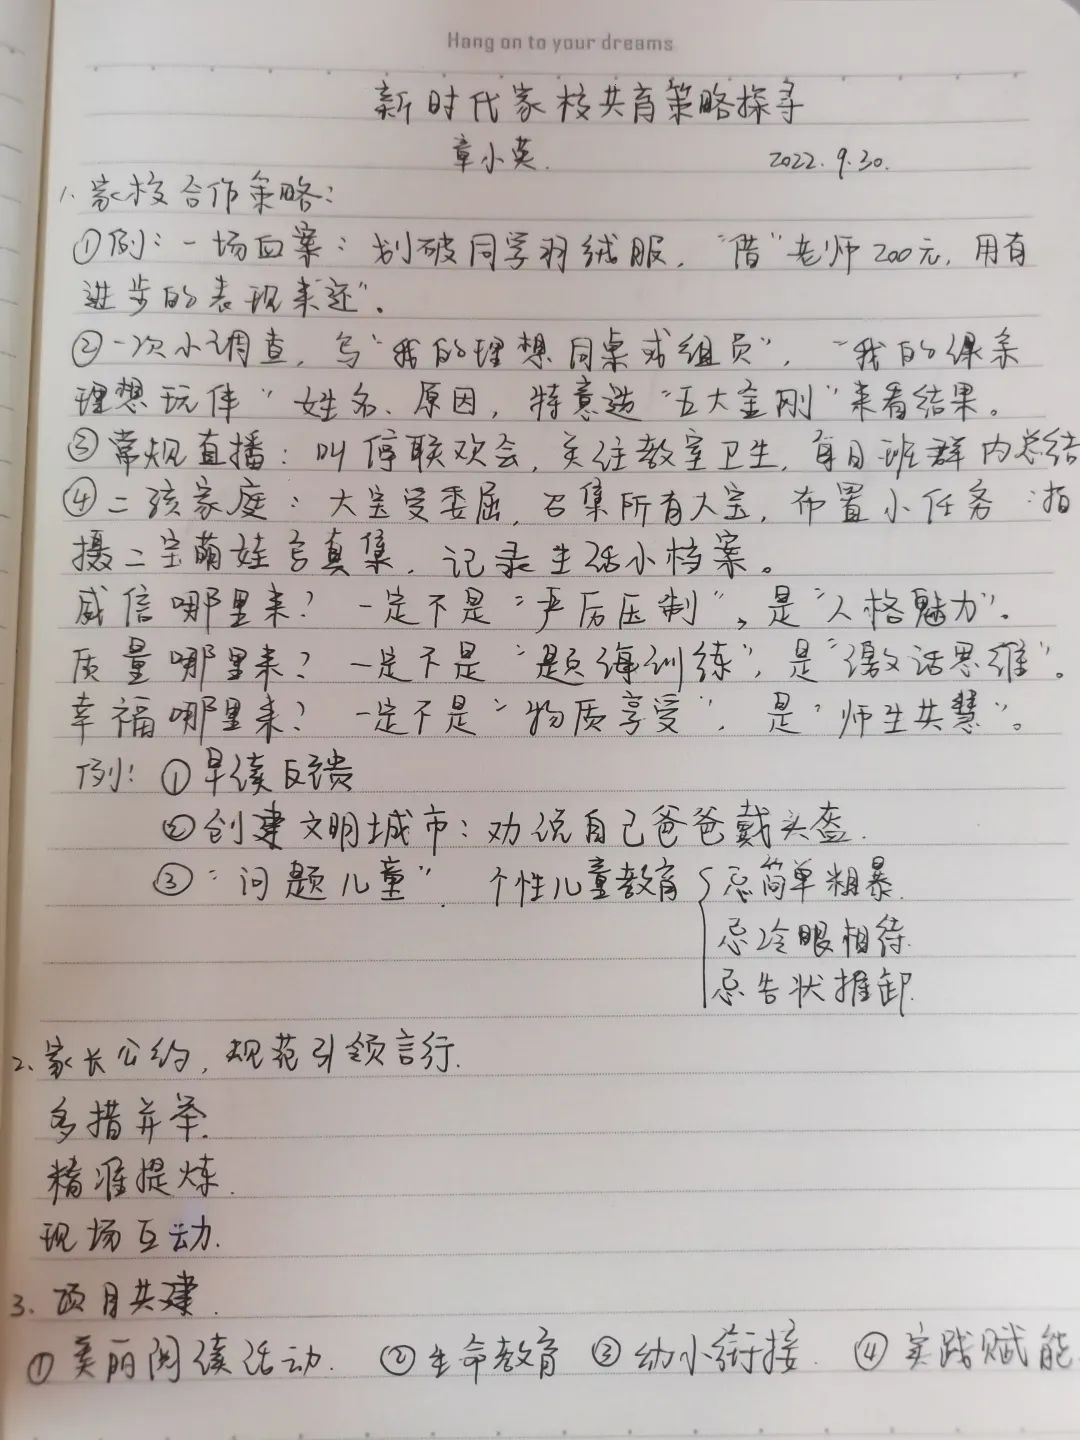 Hang on to your dreams
新时代家校共育策略探寻
章小英. 2022.9.30.
1. 家校合作策略:
①例:一场血案:划破同学羽绒服,"借"老师200元,用有
进步的表现来"还"。
②一次小调查,写"我的理想同桌或组员","我的课余
理想玩伴"姓名、原因,特意选"五大金刚"来看结果。
③常规直播:叫停联欢会,关注教室卫生,每日班群内总结
④二孩家庭:大宝受委屈,召集所有大宝,布置小任务:拍
摄二宝萌娃写真集,记录生活小档案。
威信哪里来?一定不是"严厉压制",是"人格魅力"。
质量哪里来?一定不是"题海训练",是"激活思维"。
幸福哪里来?一定不是"物质享受",是"师生共慧"。
例:①早读反馈
②创建文明城市:劝说自己爸爸戴头盔.
③"问题儿童",个性儿童教育{忌简单粗暴.
忌冷眼相待.
忌告状推卸.
2. 家长公约,规范引领言行.
多措并举.
精准提炼.
现场互动.
3. 项目共建.
①美丽阅读活动. ②生命教育 ③幼小衔接. ④实践赋能